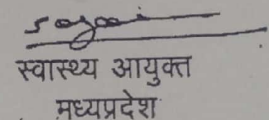 स्वास्थ्य आयुक्त
मध्यप्रदेश